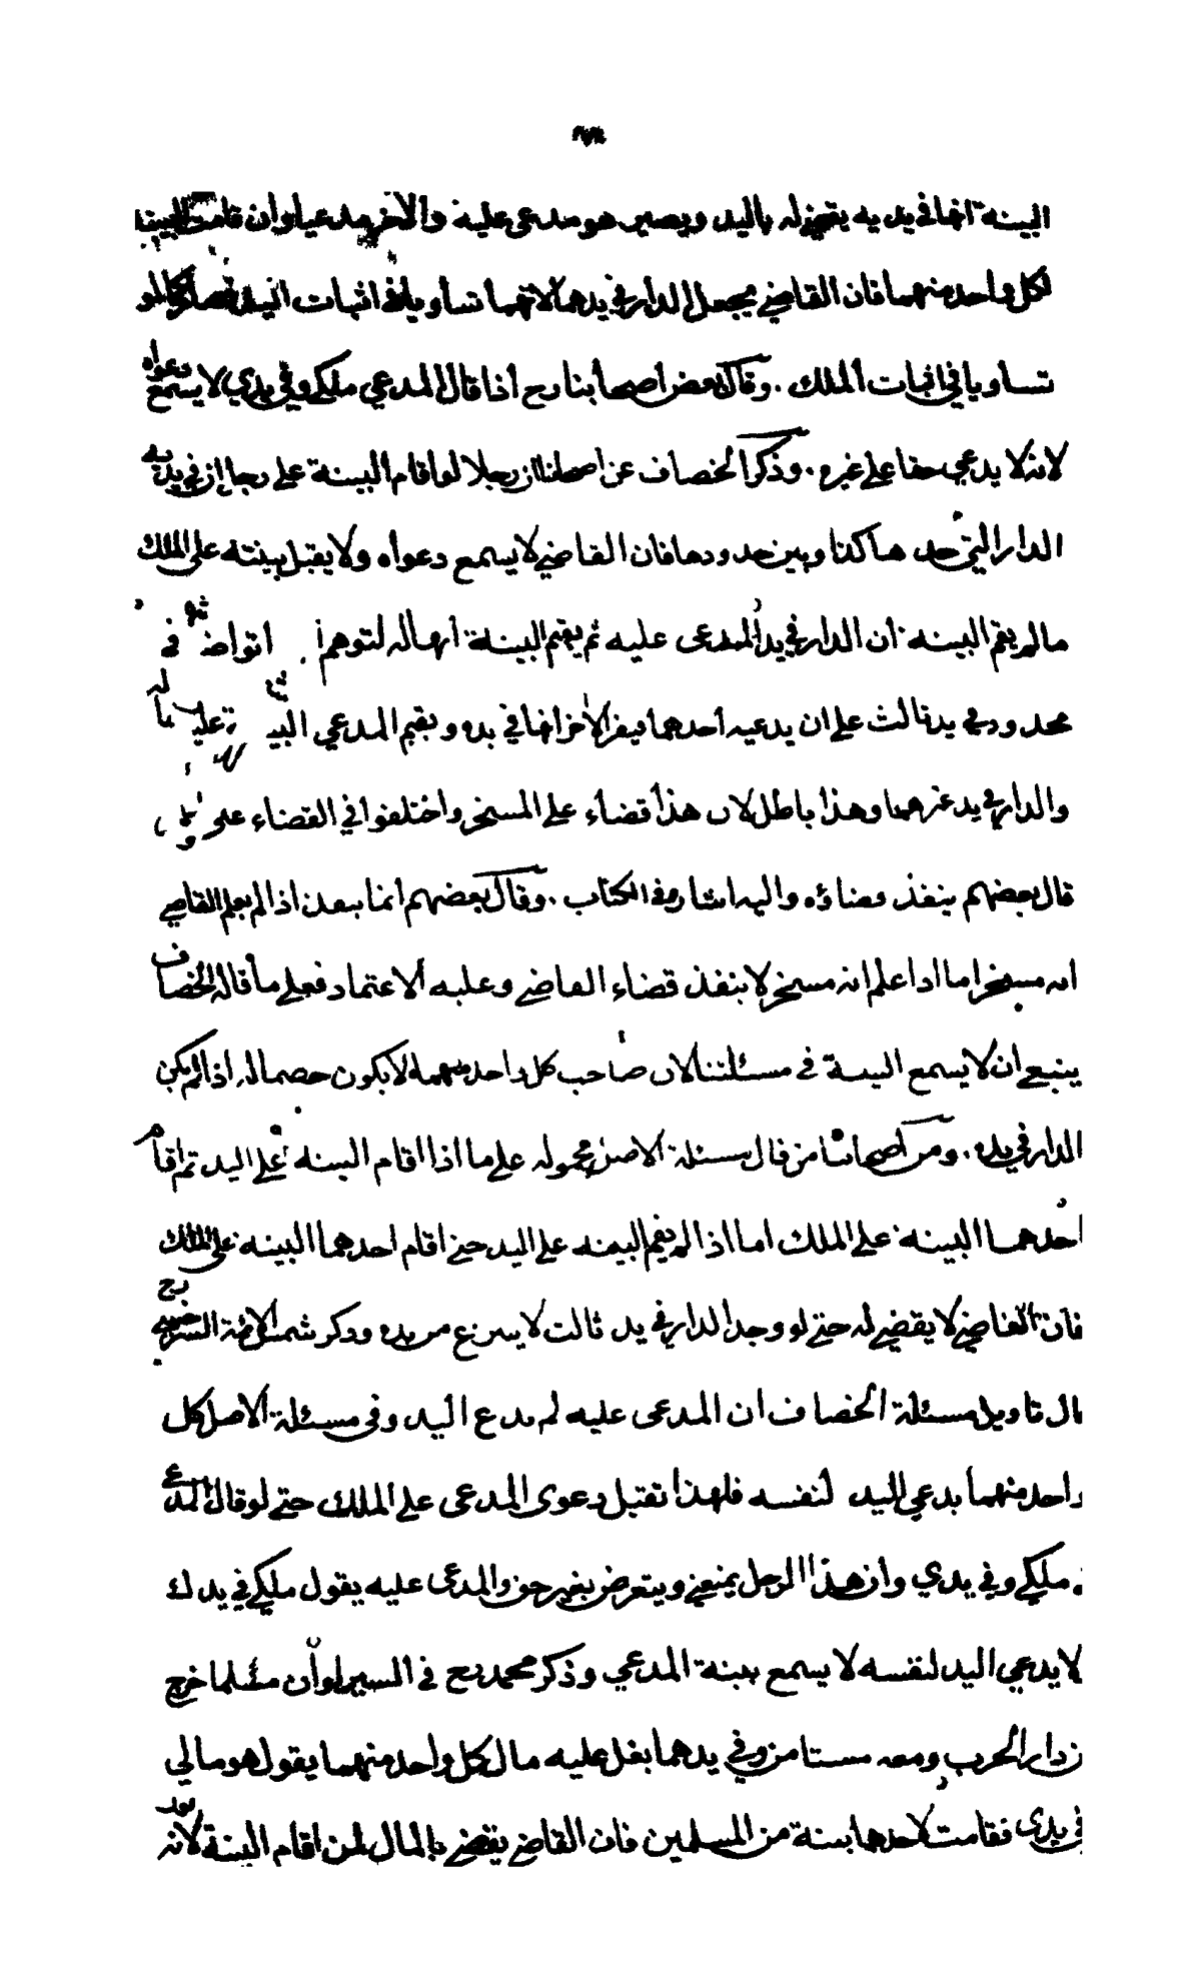 البينة انها في يديه يقضي له باليد ويصير هو مدعى عليه والآخر مدعيا وان قامت البينة
لكل واحد منهما فان القاضي يجعل الدار في يدهما لانهما تساويا في اثبات اليد فصار كما لو
تساويا في اثبات الملك . وقال بعض اصحابنا رح اذا قال المدعي ملكي وفي يدي لا يسمع دعواه
لانه لا يدعي حقا على غيره . وذكر الخصاف عن اصحابنا ان رجلا لو اقام البينة على رجل ان في يديه
الدار التي حدها كذا وبين حدودها فان القاضي لا يسمع دعواه ولا يقبل بينته على الملك
مالم يقم البينة ان الدار في يد المدعى عليه ثم يقيم البينة انها له لتوهم انهما تواضعا في
محدود في يد ثالث على ان يدعيه احدهما ويقر الآخر انها في يده ويقيم المدعي البينة عليه بانه له
والدار في يد غيرهما وهذا باطل لان هذا قضاء على المسخر واختلفوا في القضاء على
قال بعضهم ينفذ قضاؤه واليه اشار في الكتاب . وقال بعضهم انما ينفذ اذا لم يعلم القاضي
انه مسخر اما اذا علم انه مسخر لا ينفذ قضاء القاضي وعليه الاعتماد فعلى ما قاله الخصاف
ينبغي ان لا يسمع البينة في مسئلتنا لان صاحب كل واحد منهما لا يكون خصما له اذا لم يكن
الدار في يده . ومن اصحابنا من قال مسئلة الاصل محمولة على ما اذا اقام البينة على اليد ثم اقام
احدهما البينة على الملك اما اذا لم يقم البينة على اليد حتى اقام احدهما البينة على الملك
فان القاضي لا يقضي له حتى لو وجد الدار في يد ثالث لا ينزع من يده وذكر شمس الائمة السرخسي رح
قال تاويل مسئلة الخصاف ان المدعى عليه لم يدع اليد وفي مسئلة الاصل كل
واحد منهما يدعي اليد لنفسه فلهذا تقبل دعوى المدعى على الملك حتى لو قال المدعي
ملكي وفي يدي وان هذا الرجل يمنعني ويتعرض بغير حق والمدعى عليه يقول ملكي في يدك
لا يدعي اليد لنفسه لا يسمع بينة المدعي وذكر محمد رح في السير لو ان مسلما خرج
من دار الحرب ومعه مستامن وفي يدهما بغل عليه مال كل واحد منهما يقول هو مالي
في يدي فقامت لاحدهما بينة من المسلمين فان القاضي يقضي بالمال لمن اقام البينة لانه نور